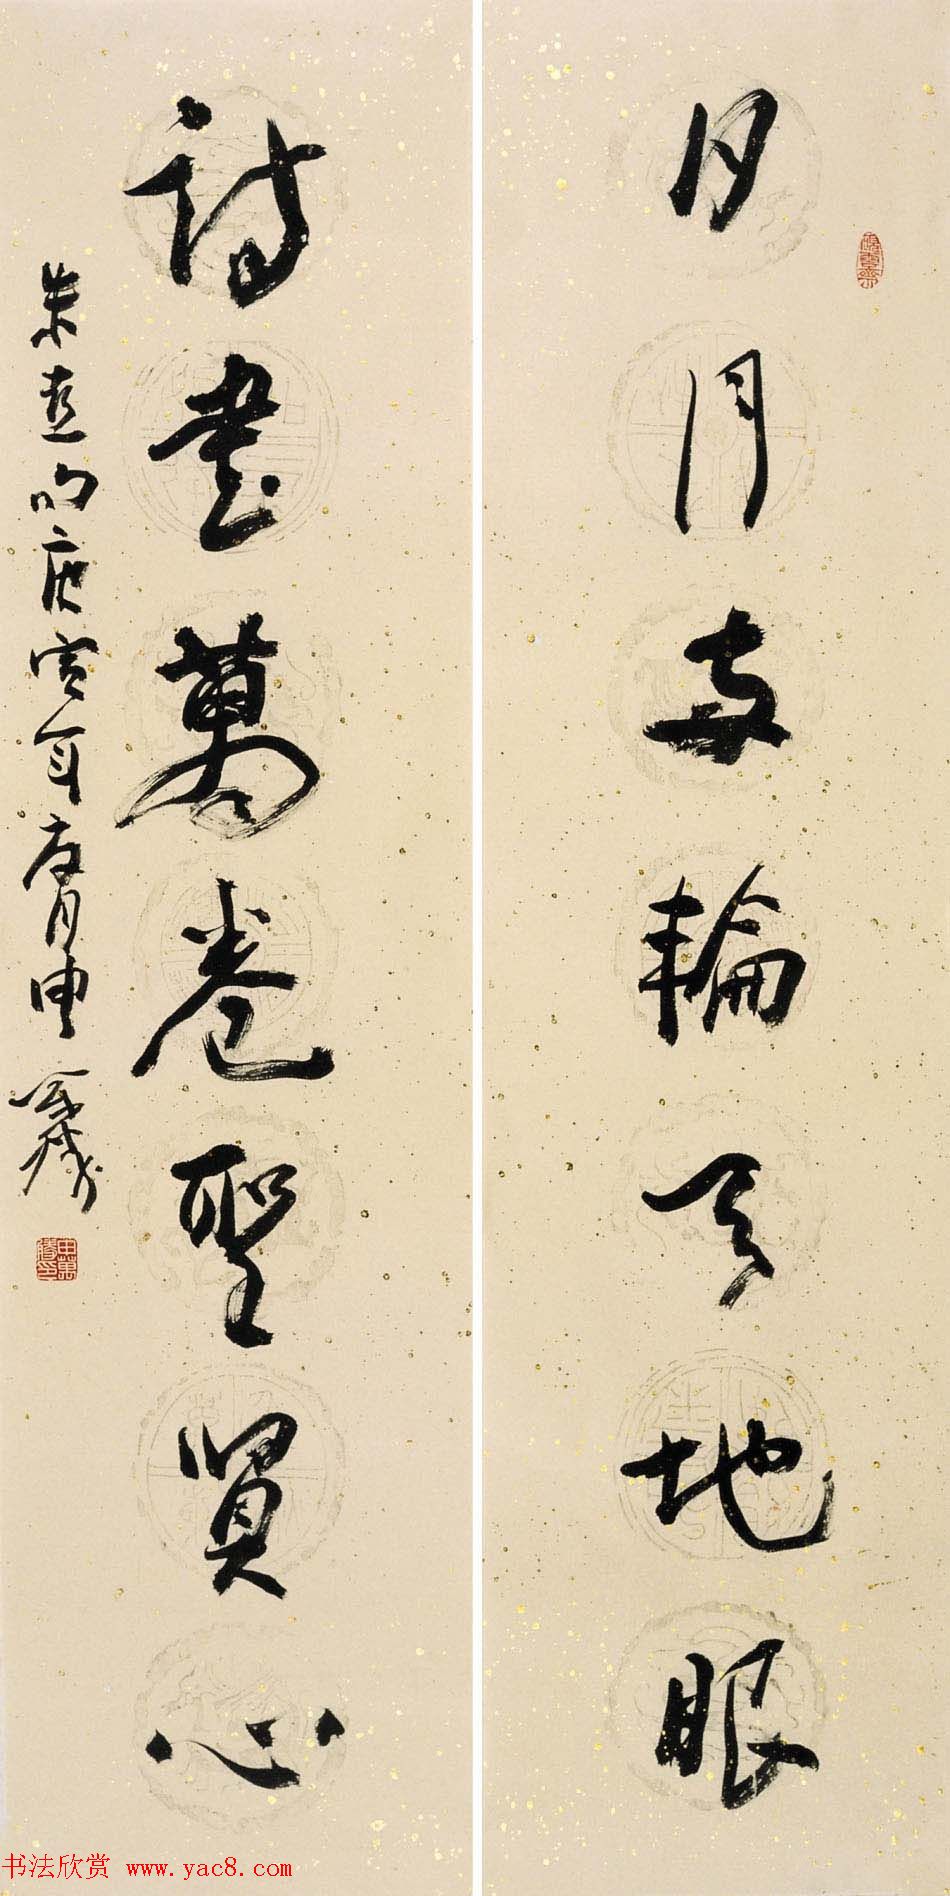 日月兩輪天地眼
詩書萬卷聖賢心
朱熹句庚寅年春月申萬勝
书法欣赏 www.yac8.com